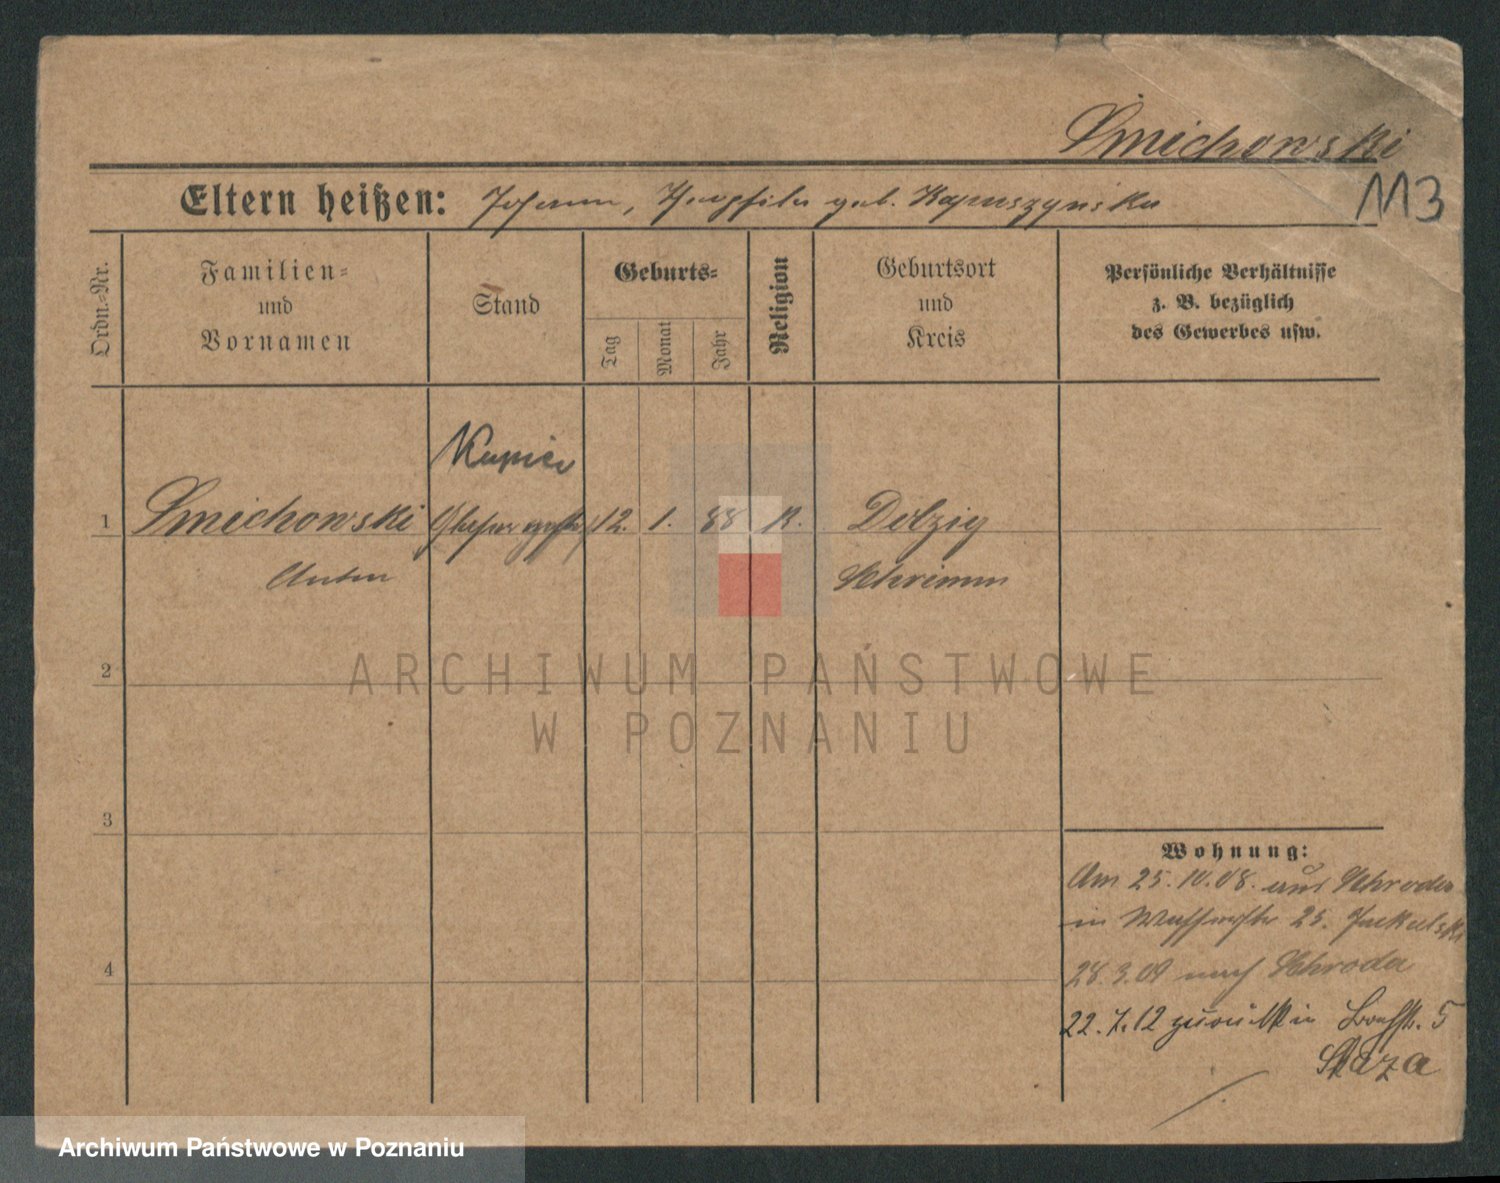 Śmichowski
Eltern heißen: Johann, Theophila geb. Kapuszynska
113
Ordn.-Nr.
Familien-
und
Vornamen
Stand
Geburts-
Tag
Monat
Jahr
Religion
Geburtsort
und
Kreis
Persönliche Verhältnisse
z. B. bezüglich
des Gewerbes usw.
Kupiec
1 Śmichowski 12. 1. 88 k. Dolzig
Anton Schrimm
2
3
4
Wohnung:
Am 25.10.08. aus Schroda
in 25.
28.3.09 nach Schroda
22.7.12 zurück in 5
ARCHIWUM PAŃSTWOWE
W POZNANIU
Archiwum Państwowe w Poznaniu